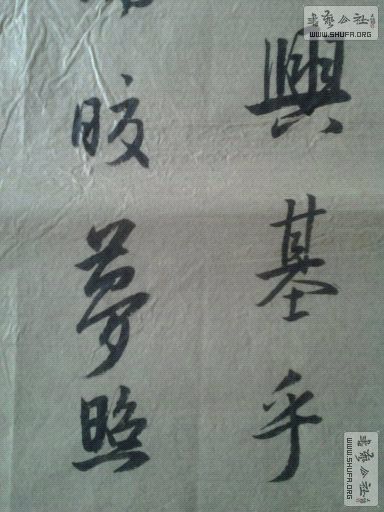 興基乎
皎夢照
書藝公社
WWW.SHUFA.ORG
書藝公社
WWW.SHUFA.ORG